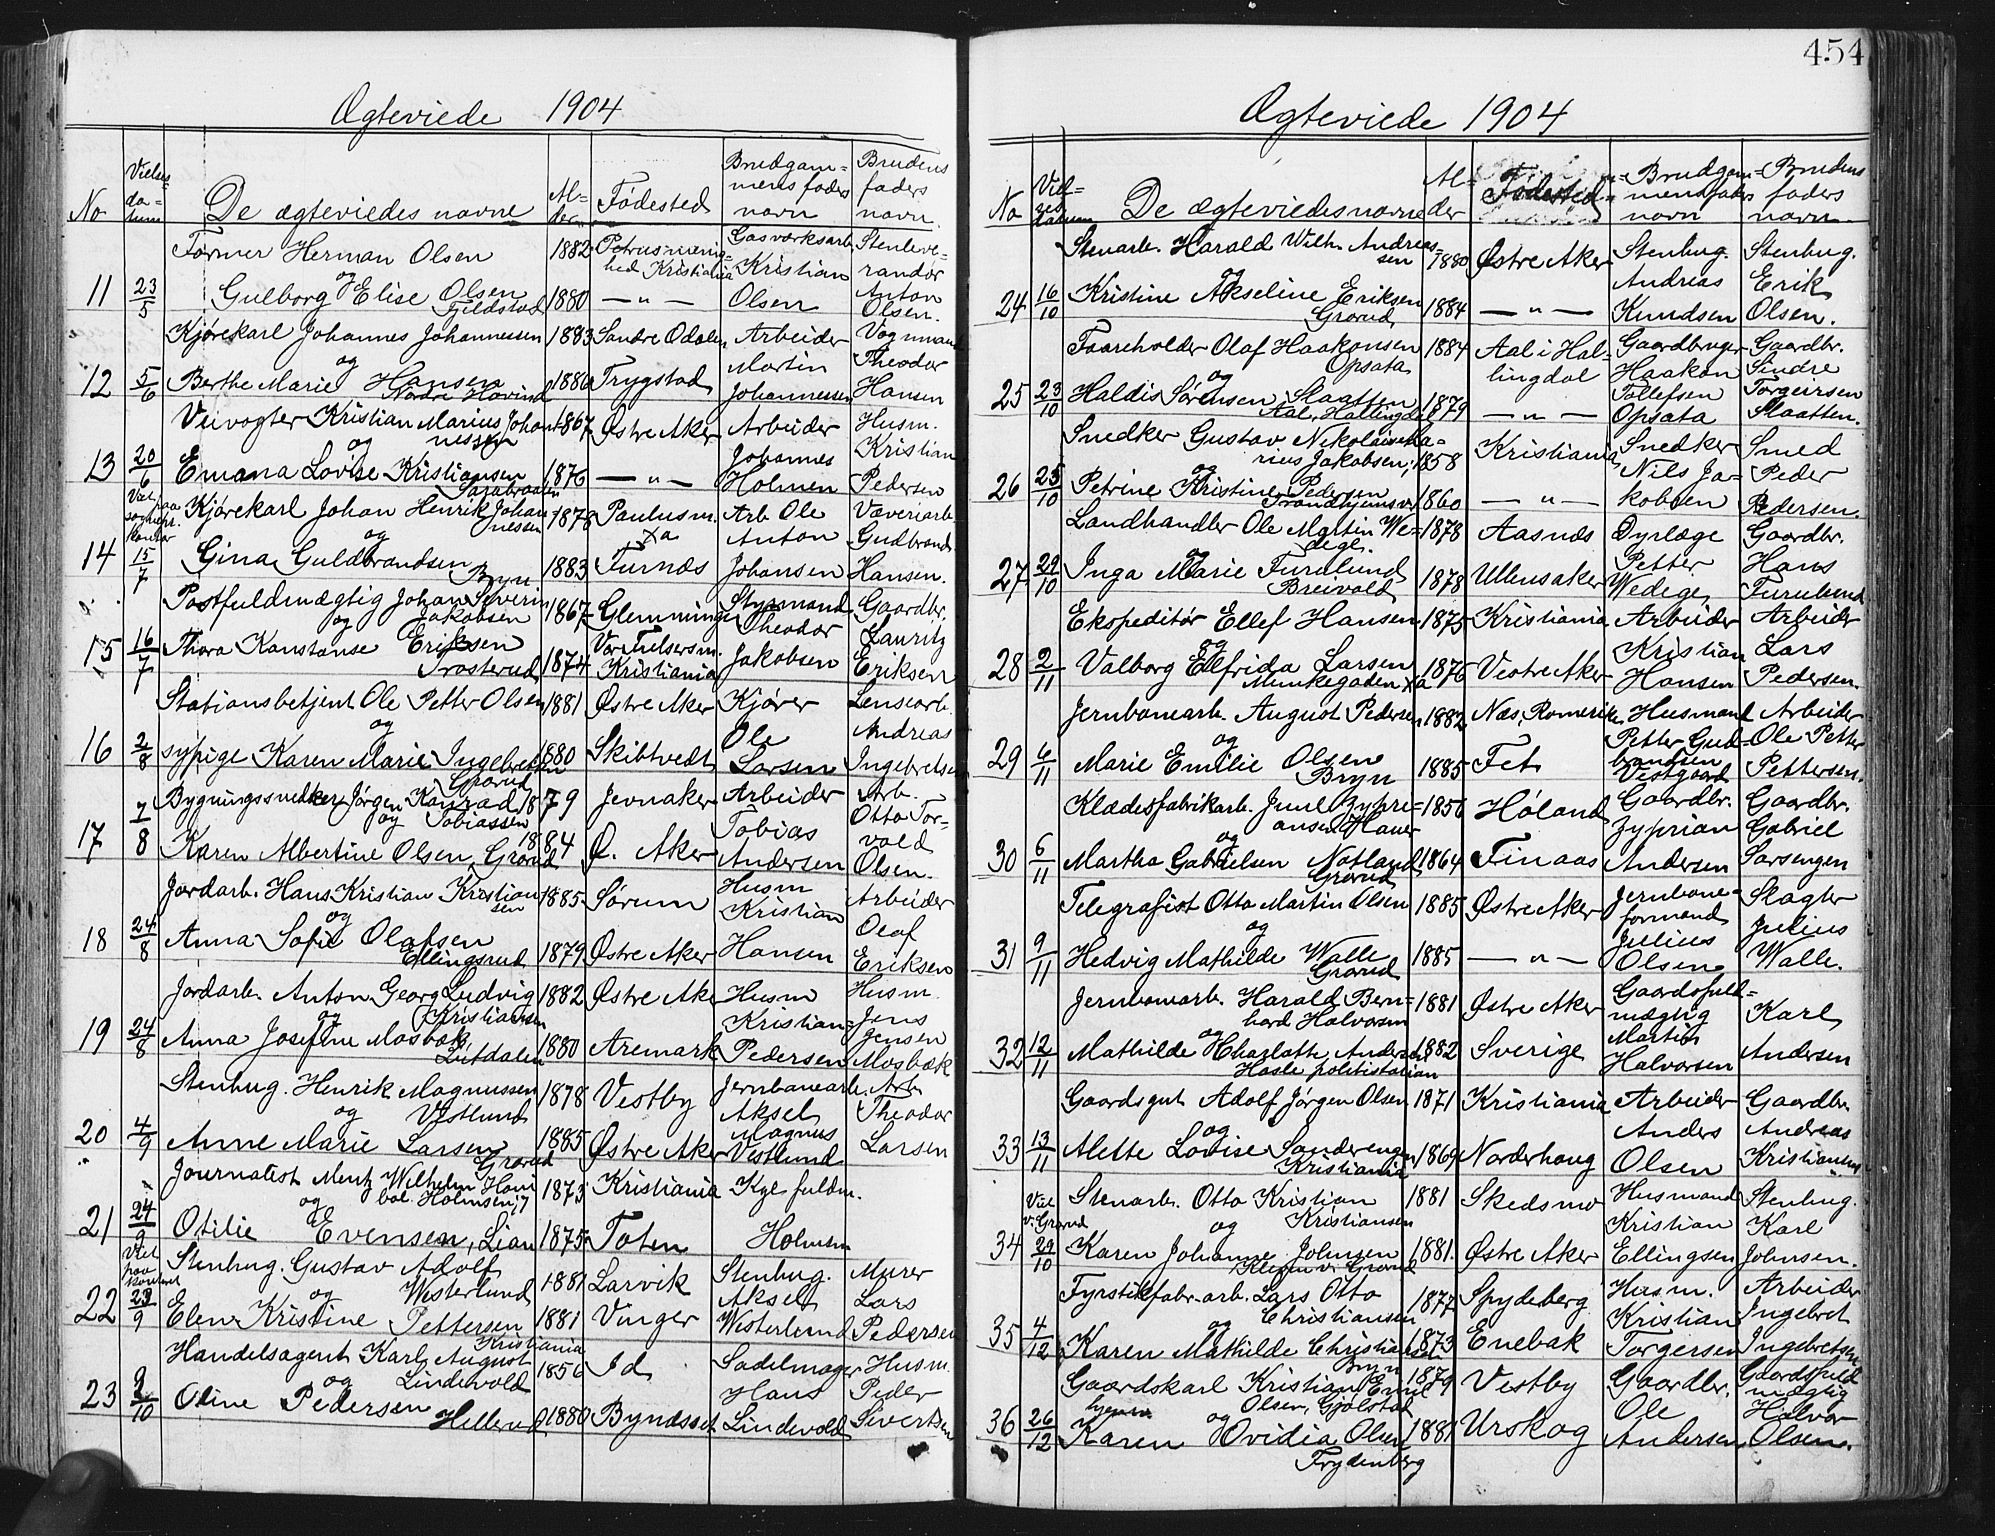 454
Ægteviede 1904
No Vielses-datum De ægteviedes navne Al-der Fødested Brudgam-mens faders navn Brudens faders navn
Former Herman Olsen 1882 Petrus menig- Gasværksarb. Stenleve-
og hed Kristiania Kristian randør
11 23/5 Gulborg Elise Olsen 1880 — " — Olsen Anton
Fjeldstad Olsen.
Kjørekarl Johannes Johannessen 1883 Søndre Odalen Arbeider Vognmand
og Martin Theodor
12 5/6 Berthe Marie Hansen 1886 Trygstad Johannessen Hansen
Nordre Hovind
Veivogter Kristian Marius Johan- 1867 Østre Aker Arbeider Husm.
nessen
og Johannes Kristian
13 20/6 Emma Lovise Kristiansen 1876 — " — Holmen Pedersen
Viet paa sognepr. kontor Kjørekarl Johan Henrik Johan- 1878 Paulusm. Arb. Ole Væveriarb.
nessen
og Xa Anton Gudbrand
14 15/7 Gina Guldbrandsen 1883 Furnæs Johansen Hansen.
Bryn
Postfuldmægtig Johan Severin 1867 Glemminge Styrmand Gaardbr.
og Jakobsen Theodor Lauritz
15 16/7 Thora Konstanse Eriksen 1874 Vor Frelsersm. Jakobsen Eriksen
Trosterud Kristiania
Stationsbetjent Ole Petter Olsen 1881 Østre Aker Kjører Lensearb.
og Ole Andreas
16 2/8 sypige Karen Marie Ingebretsen 1880 Skibtvedt Larsen Ingebretsen
Grorud
Bygningssnedker Jørgen Konrad 1879 Jevnaker Arbeider Arb.
og Tobiassen Tobias Otto Tor-
17 7/8 Karen Albertine Olsen, Grorud 1884 Ø. Aker Andersen vald
Olsen.
Jordarb. Hans Kristian Kristian- 1885 Sørum Husm Arbeider
sen
og Kristian Olaf
18 24/8 Anna Sofie Olafsen 1879 Østre Aker Hansen Eriksen
Ellingsrud
Jordarb. Anton Georg Ludvig 1882 Østre Aker Husm Husm.
og Kristiansen Kristian Jens
19 24/8 Anna Josefine Mosbæk, 1880 Aremark Pedersen Jensen
Lutdalen Mosbæk
Stenhug. Henrik Magnussen 1878 Vestby Jernbanearb. Arb.
og Vestlund Aksel Theodor
20 4/9 Anne Marie Larsen 1885 Østre Aker Magnus Larsen
Grorud Vestlund
Journalist Mentz Wilhelm Hani- 1873 Kristiania Kgl. fuldm.
og bal Holmsen,
21 24/9 Otilie Evensen, Lian 1875 Toten Holmsen
Viet paa kontoret Stenhug. Gustav Adolf 1881 Larvik Stenhug. Murer
og Westerlund Aksel Lars
22 23/9 Elen Kristine Pettersen 1881 Vinger Westerlund Pedersen
Kristiania
Handelsagent Karl August 1856 Id Sadelmager Husm.
og Lindevold Hans Peder
23 2/10 Oline Pedersen 1880 Byndsset Lindevold Sivertsen
Hellerud
Ægteviede 1904
No Viel-ses-datum De ægteviedes navne Al-der Fødested Brudgam-mens faders navn Brudens faders navn
Stenarb. Harald Wilh. Andreas- 1880 Østre Aker Stenhug. Stenhug.
sen
og Andreas Erik
24 16/10 Kristine Akseline Eriksen 1884 — " — Knudsen Olsen.
Grorud
Faareholder Olaf Haakonsen 1884 Aal i Hal- Gaardbruger Gaardbr.
og Opsata lingdal Haakon Sindre
25 23/10 Haldis Sørensen Slaatten 1879 — " — Tollefsen Torgeirsen
Aal, Hallingdal Opsata Slaatten.
Snedker Gustav Nikolai Ma- Kristiania Snedker Smed
rius Jakobsen, 1858
og Nils Ja- Peder
26 25/10 Petrine Kristine Pedersen 1860 — " — kobsen Pedersen.
Trondhjemsv.
Landhandler Ole Martin We- 1878 Aasnæs Dyrlæge Gaardbr.
dege.
og Petter Hans
27 29/10 Inga Marie Furulund 1878 Ullensaker Wedege, Furulund
Breivold
Ekspeditør Ellef Hansen 1875 Kristiania Arbeider Arbeider
og Kristian Lars
28 2/11 Valborg Elfrida Larsen 1876 Vestre Aker Hansen Pedersen.
Munkegaden Xa
Jernbanearb. August Pedersen 1882 Næs, Romerike Husmand Arbeider
og Petter Gud- Ole Petter
29 6/11 Marie Emilie Olsen 1885 Fet brandsen Pettersen.
Bryn Vestgaard
Klædesfabrikarb. Juul Zypri- 1856 Høland Gaardbr. Gaardbr.
ansen Haner
og Zyprian Gabriel
30 6/11 Martha Gabrielsen Notland 1864 Finaas Andersen Sarsengen
Grorud
Telegrafist Otto Martin Olsen 1885 Østre Aker Jernbane- Slagter
og formand Julius
31 9/11 Hedvig Mathilde Walle 1885 — " — Julius Walle.
Grorud Olsen
Jernbanearb. Harald Bern- 1881 Østre Aker Gaardsfuld-
hard Halvorsen mægtig Karl
og Martin
32 12/11 Mathilde Charlotte Andersen 1882 Sverige Halvorsen Andersen
Hasle politistation
Gaardsgut Adolf Jørgen Olsen 1871 Kristiania Arbeider Gaardbr.
og Anders Andreas
33 13/11 Alette Lovise Sanderengen 1869 Norderhaug Olsen Kristiansen
Kristiania
Viet v. Grorud Stenarb. Otto Kristian 1881 Skedsmo Husmand Stenhug.
og Kristiansen Kristian Karl
34 29/10 Karen Johanne Johnsen 1881. Østre Aker Ellingsen Johnsen.
v. Grorud
Fyrstikfabr.arb. Lars Otto 1877 Spydeberg Husm. Arbeider
og Christiansen Kristian Ingebret
35 4/12 Karen Mathilde Christiansen 1873 Enebak Torgersen Ingebretsen
Bryn
Gaardskarl Kristian Emil 1879 Vestby Gaardbr. Gaardsfuld-
og Olsen, Gjølstad Ole mægtig
36 26/12 Karen Ovidia Olsen 1881 Urskog Andersen Halvor
Frydenberg Olsen.